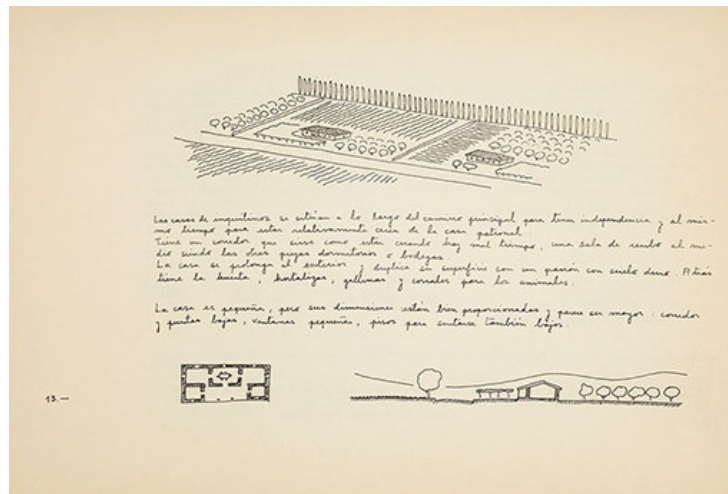 Las casas de inquilinos se sitúan a lo largo del camino principal para tener independencia y al mis-
mo tiempo para estar relativamente cerca de la casa patronal.
Tiene un corredor que sirve como estar cuando hay mal tiempo, una sala de recibo al me-
dio siendo las otras piezas dormitorios o bodegas.
La casa se prolonga al exterior y duplica su superficie con un parrón con suelo duro. Atrás
tiene la huerta, hortalizas, gallinas y corrales para los animales.
La casa es pequeña, pero sus dimensiones están bien proporcionadas y parece ser mayor: corredor
y puertas bajas, ventanas pequeñas, pisos para sentarse también bajos.
13.—